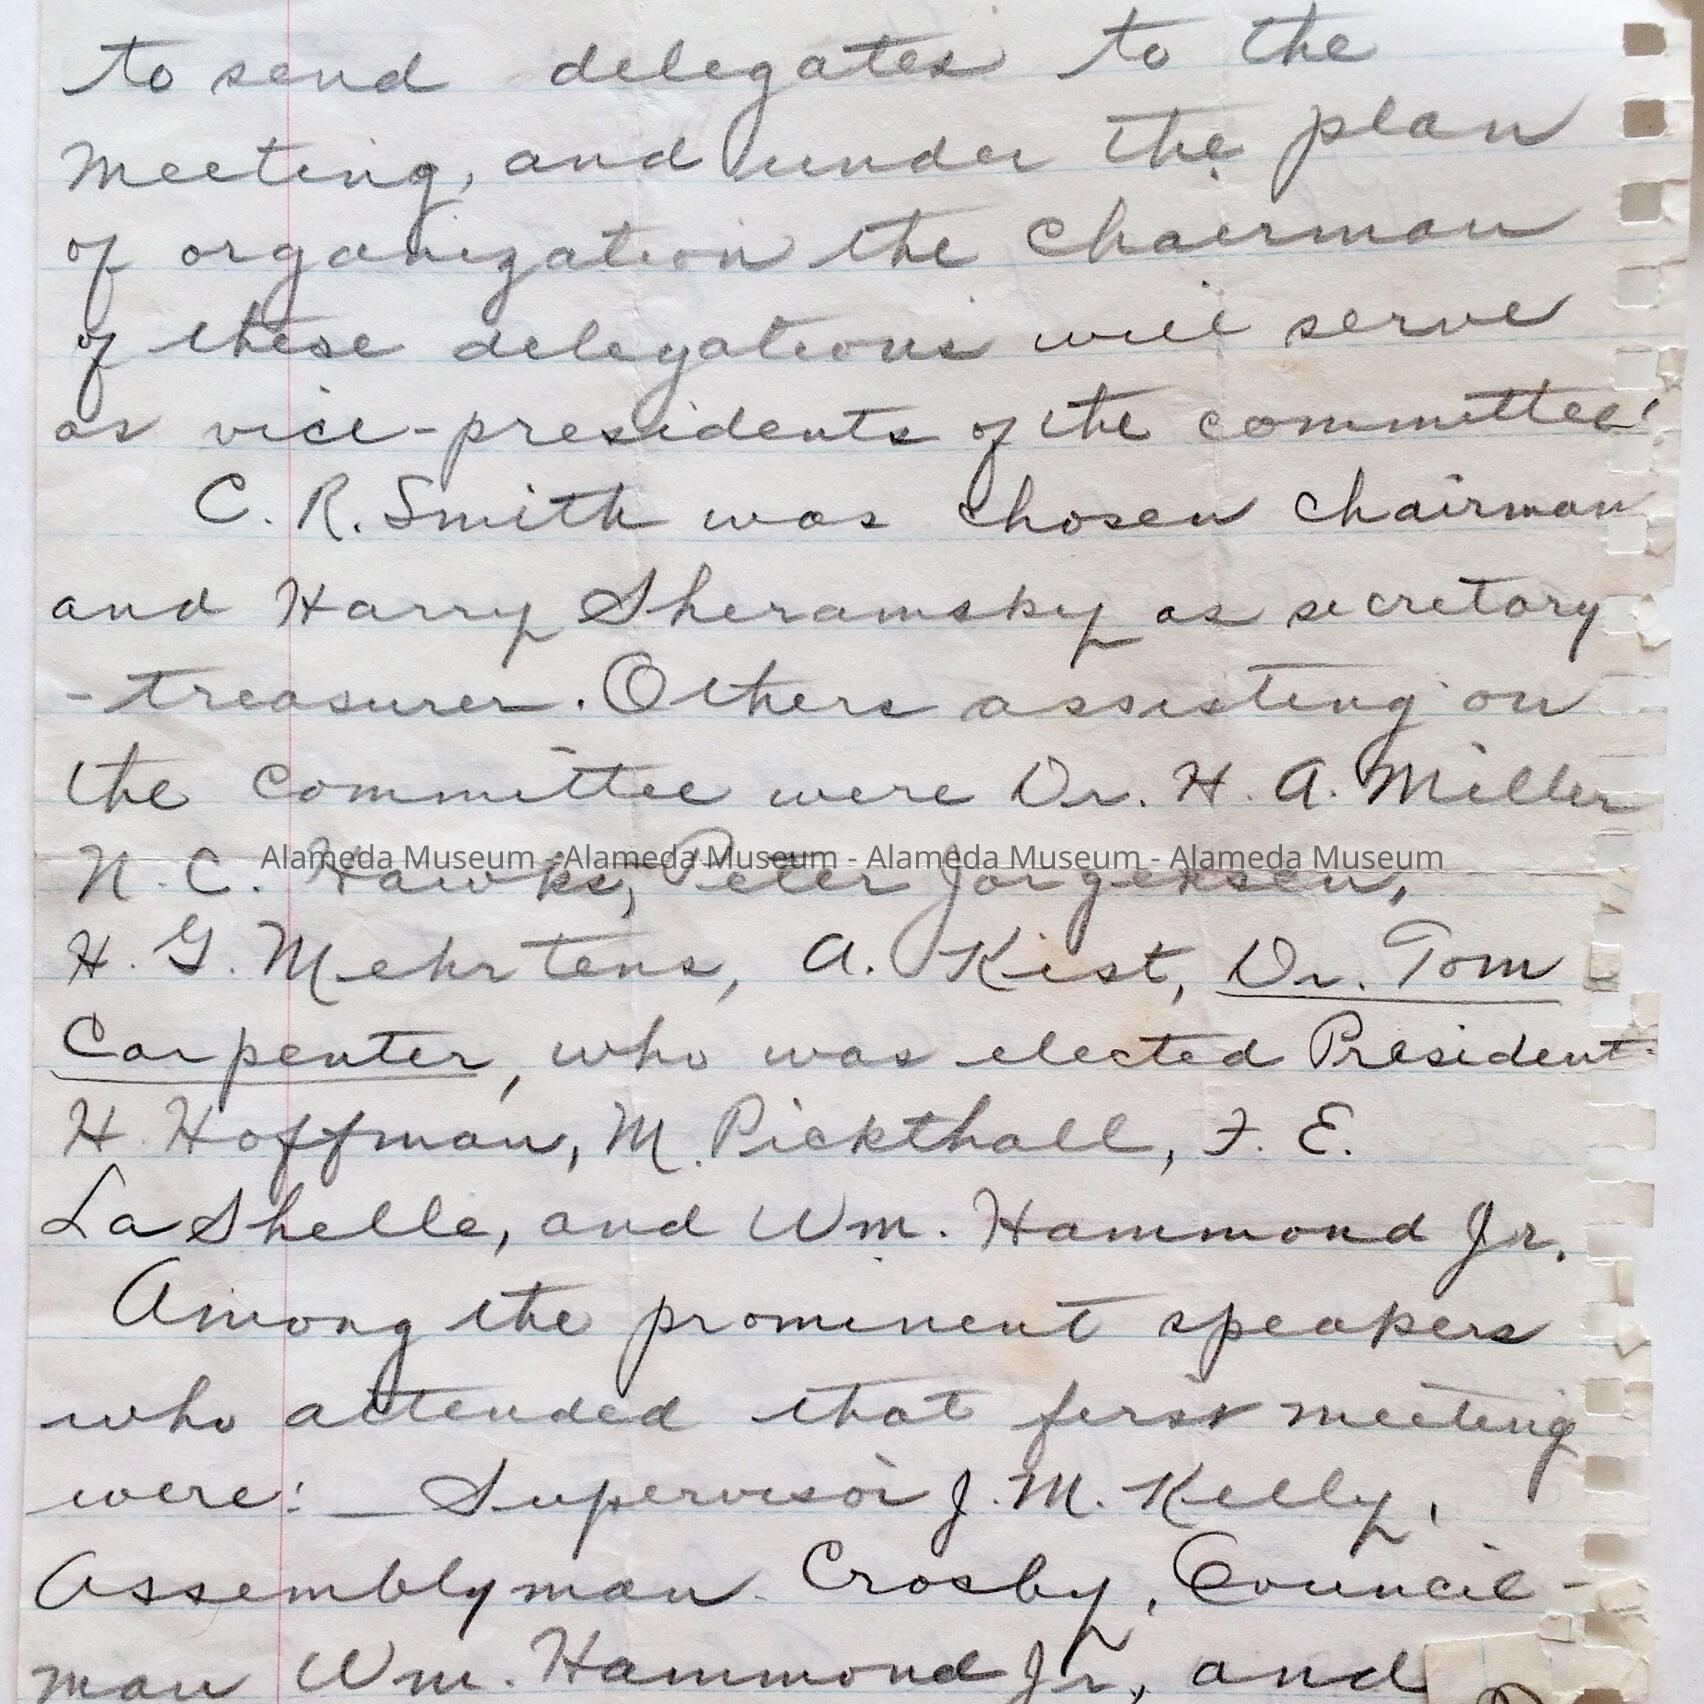 to send delegates to the
meeting, and under the plan
of organization the chairman
of these delegations will serve
as vice-presidents of the committee!
C. R. Smith was chosen chairman
and Harry Sheramsky as secretary
- treasurer. Others assisting on
the committee were Dr. H. A. Miller
Alameda Museum - Alameda Museum - Alameda Museum - Alameda Museum
N. C. Hawks, Peter Jorgensen,
H. G. Mehrtens, A. Kist, Dr. Tom
Carpenter, who was elected President
H. Hoffman, M. Pickthall, F. E.
La Shelle, and Wm. Hammond Jr.
Among the prominent speakers
who attended that first meeting
were: _ Supervisor J. M. Kelly,
Assemblyman Crosby, Council-
man Wm. Hammond Jr, and